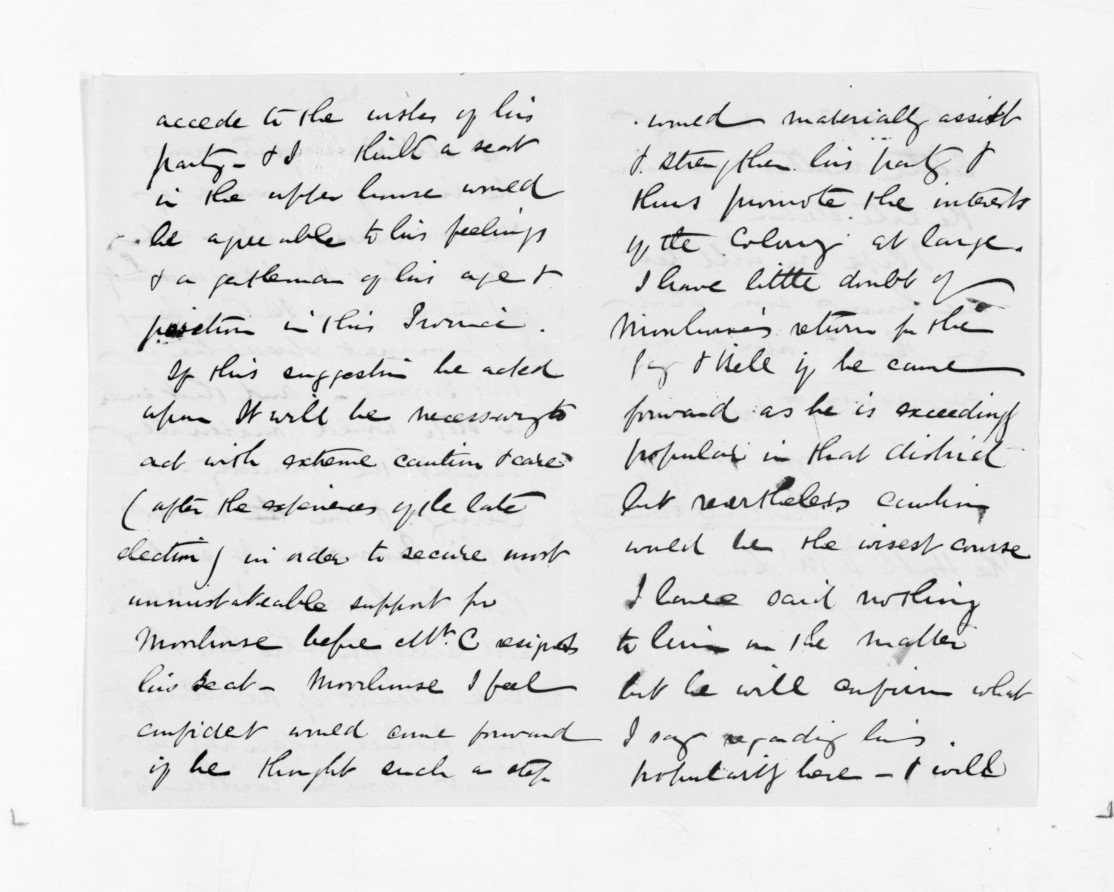 accede to the wishes of his
party - & I think a seat
in the upper house would
be agreeable to his feelings
& a gentleman of his age &
position in this Province.
If this suggestion be acted
upon It will be necessary to
act with extreme caution & care
(after the experiences of the late
election) in order to secure most
unmistakeable support for
Moorhouse before Mr. C resigns
his seat - Moorhouse I feel
confident would come forward
if he thought such a step
would materially assist
& strengthen his party &
thus promote the interests
of the Colony at large.
I have little doubt of
Moorhouse's return for the
if he came
forward as he is exceedingly
popular in that district
but nevertheless caution
would be the wisest course
I have said nothing
to him on the matter
but he will confirm what
I say regarding his
popularity here - I will